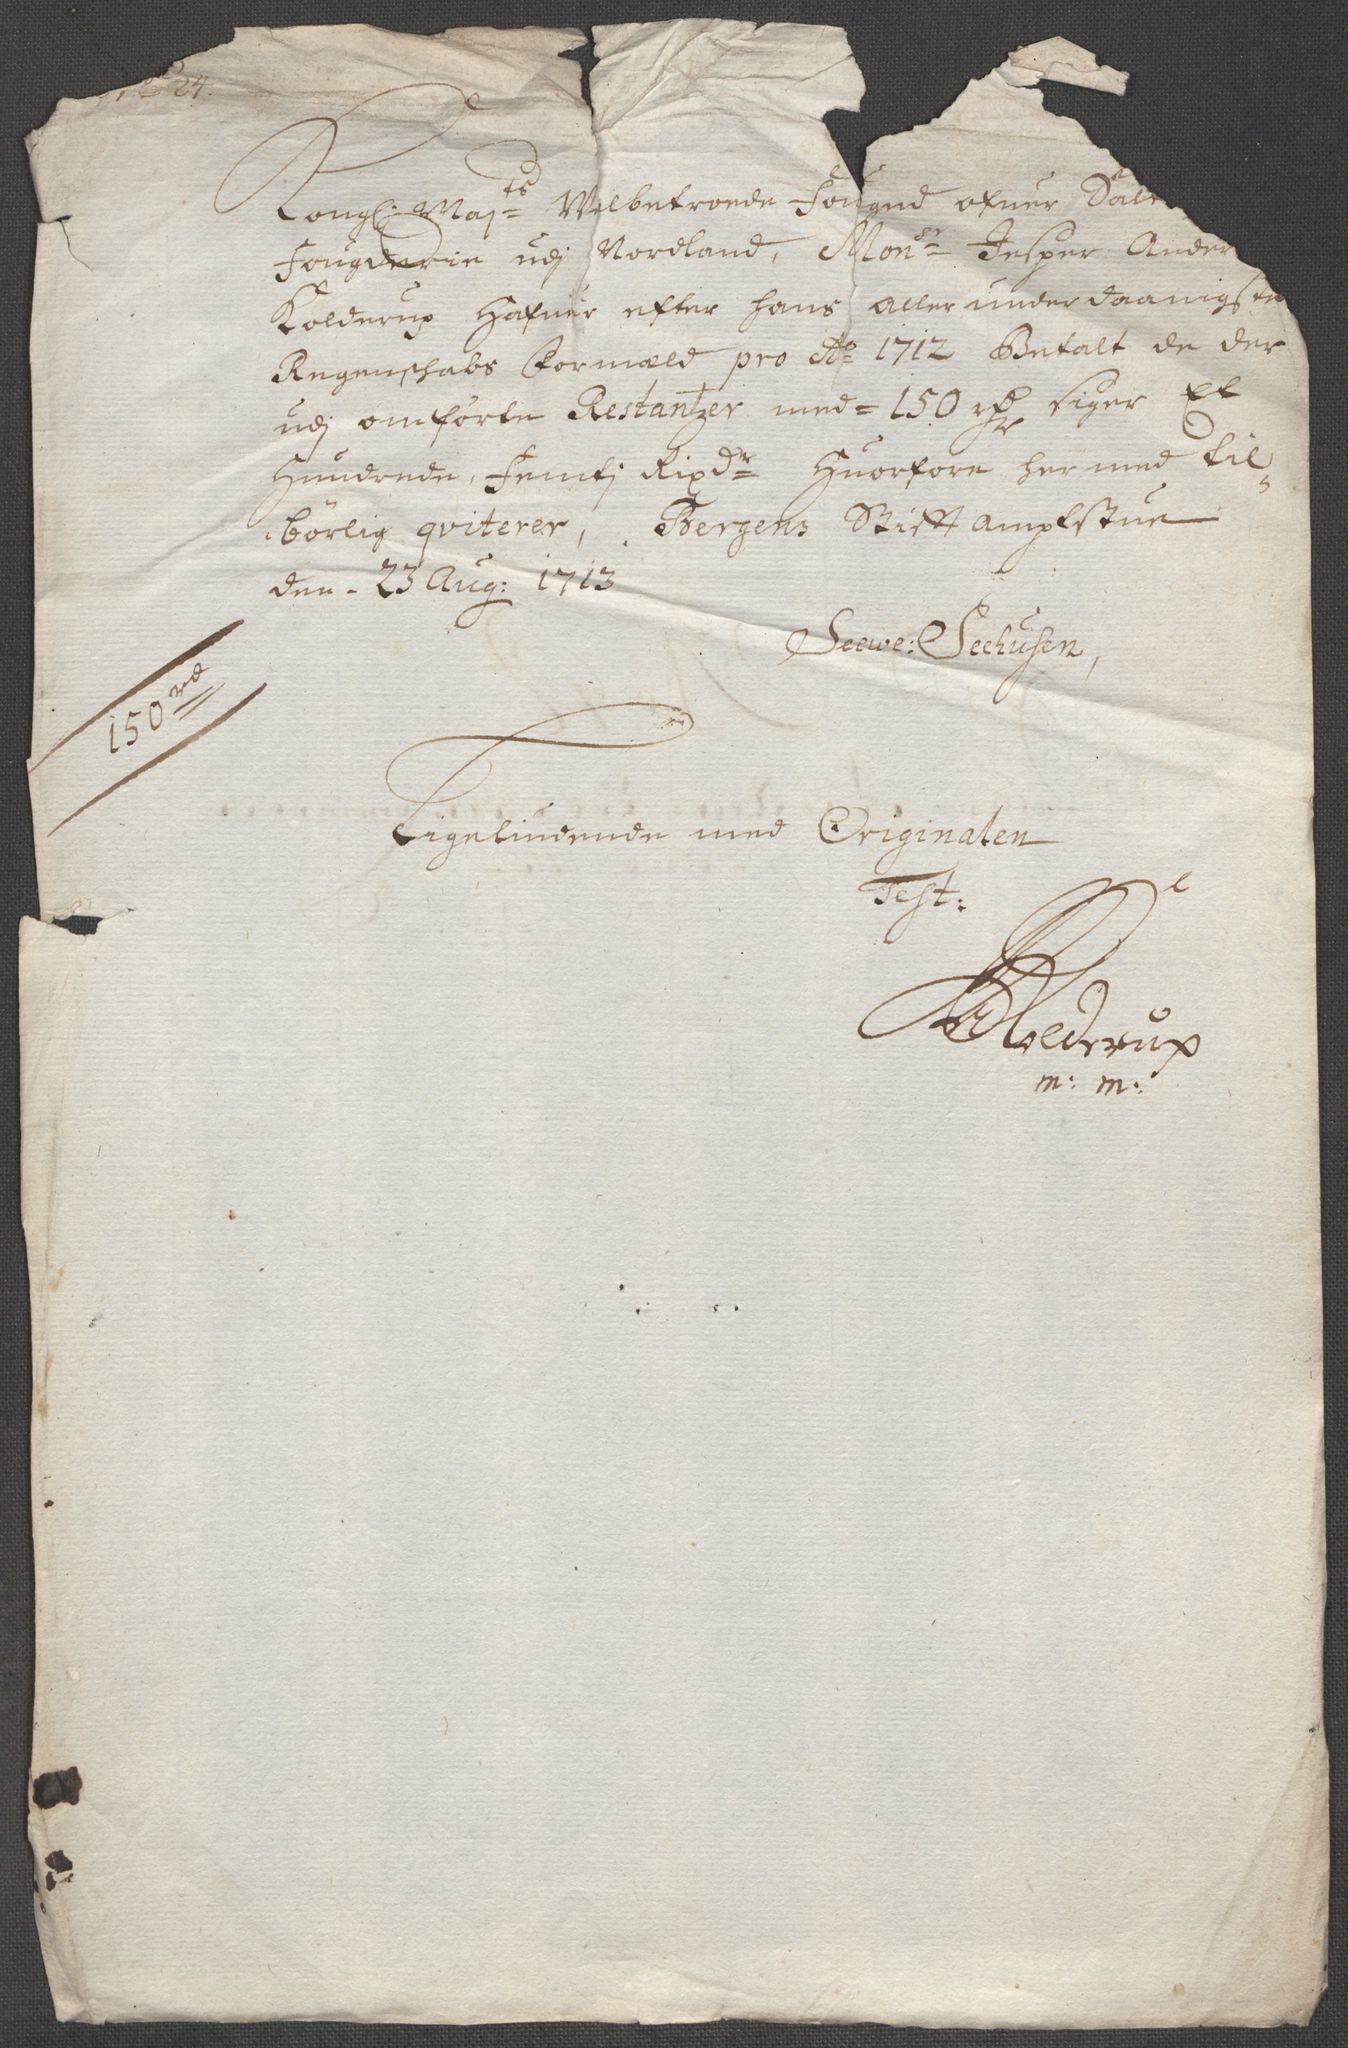 24.
Kongl: Maj:ts Velbetroede Fougud ofuer Salt
Fougderie udj Nordland, Mons:r Jesper Ander
Kolderup Hafuer efter hans allerunderdaanigste
Regenschabs Formæld pro Ao 1712 Betalt de der
udj omførte Restantzer med= 150 rdr siger Et
Hundrede, Femtj Rixdr Huorfore her med til=
børlig qviterer, Bergens Stift Amptstue
den - 23 Aug: 1713
Seewe: Seehusen,
150 rd
Ligelindende med Originalen
Test:
Kolderup
m: m: